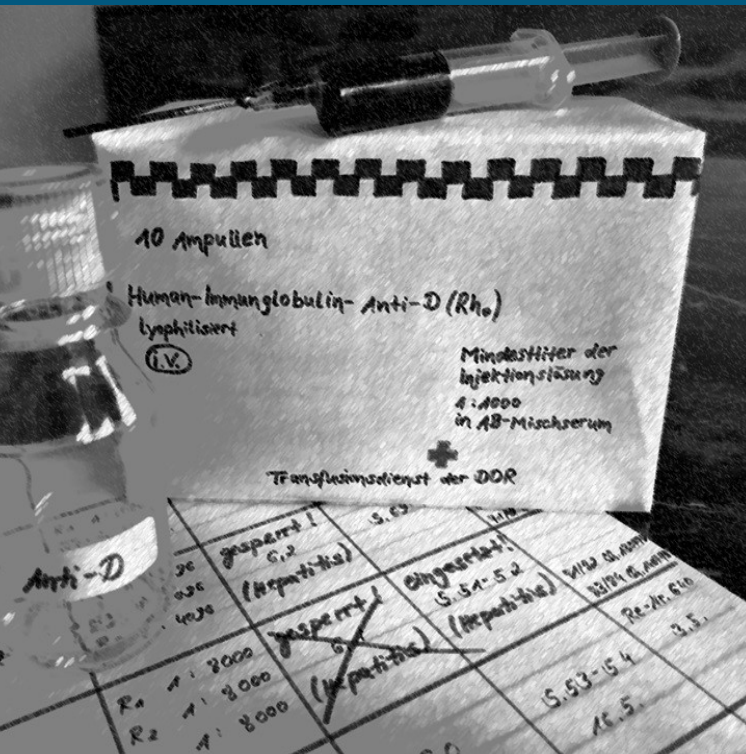 10 Ampullen
Human-Immunglobulin-Anti-D (Rh₀)
Lyophilisiert
i.v.
Mindesttiter der
Injektionslösung
1:1000
in AB-Mischserum
Transfusionsdienst der DDR
Anti-D
4096
gesperrt!
(Hepatitis)
eingesetzt!
S. 51-52
(Hepatitis)
gesperrt!
(Hepatitis)
R1 1: 8000
R2 1: 8000
1: 8000
Re-Nr. 640
3.5.
S. 53-54
16.5.